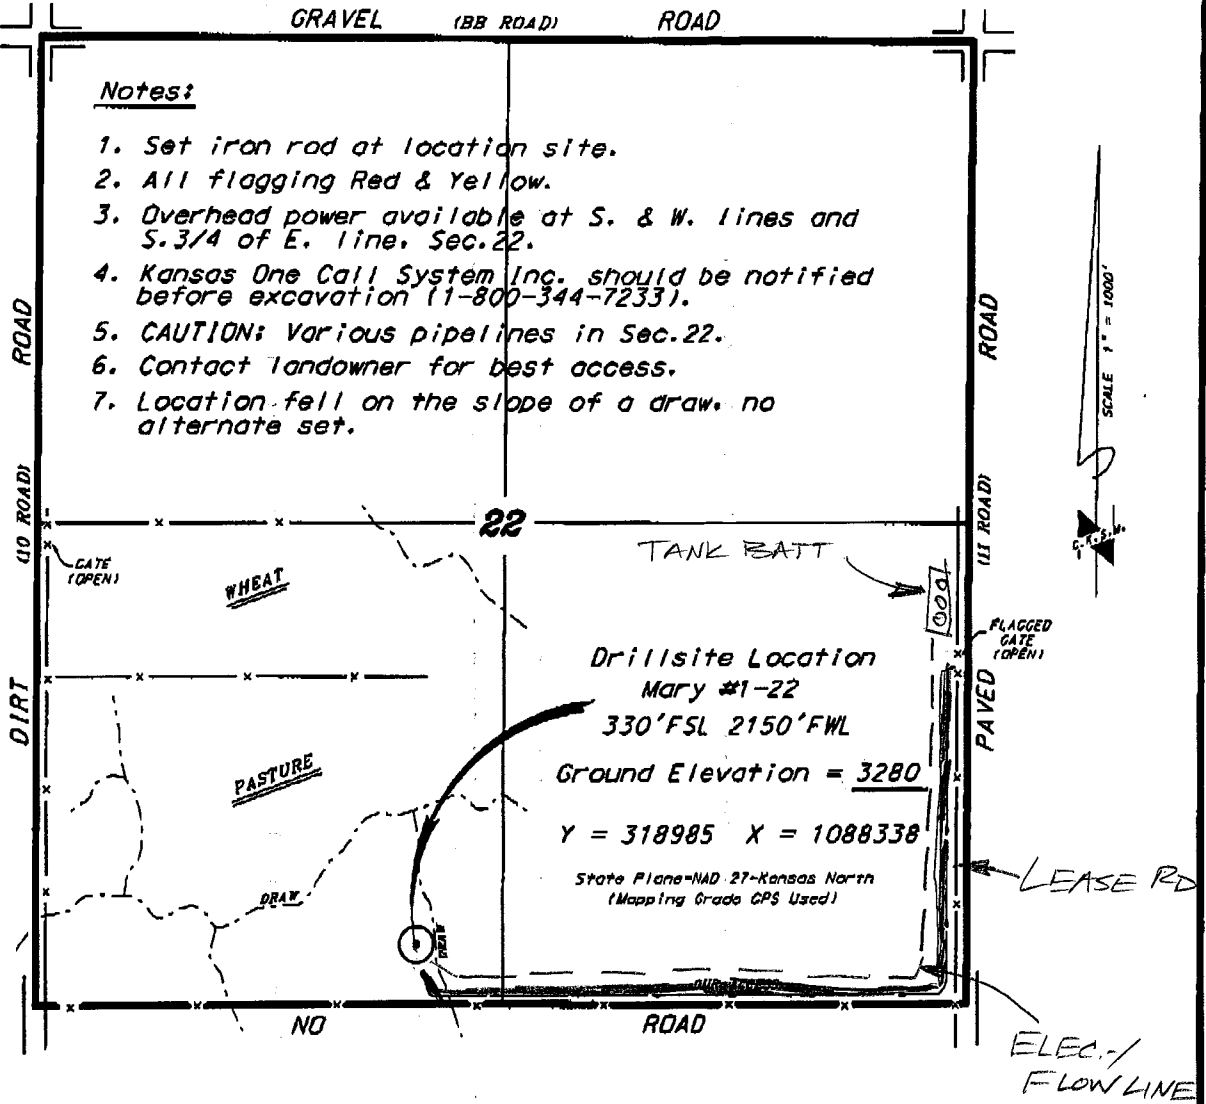 GRAVEL (BB ROAD) ROAD
Notes:
1. Set iron rod at location site.
2. All flagging Red & Yellow.
3. Overhead power available at S. & W. lines and
S.3/4 of E. line, Sec.22.
4. Kansas One Call System Inc. should be notified
before excavation (1-800-344-7233).
5. CAUTION: Various pipelines in Sec.22.
6. Contact landowner for best access.
7. Location fell on the slope of a draw, no
alternate set.
DIRT (10 ROAD) ROAD
PAVED (11 ROAD) ROAD
SCALE 1" = 1000'
C.K.S.M.
22
TANK BATT
000
GATE
(OPEN)
WHEAT
FLAGGED
GATE
(OPEN)
Drillsite Location
Mary #1-22
330'FSL 2150'FWL
PASTURE
Ground Elevation = 3280
Y = 318985 X = 1088338
State Plane-NAD 27-Kansas North
(Mapping Grade GPS Used)
LEASE RD
DRAW
DRAW
NO ROAD
ELEC.-/
FLOW LINE